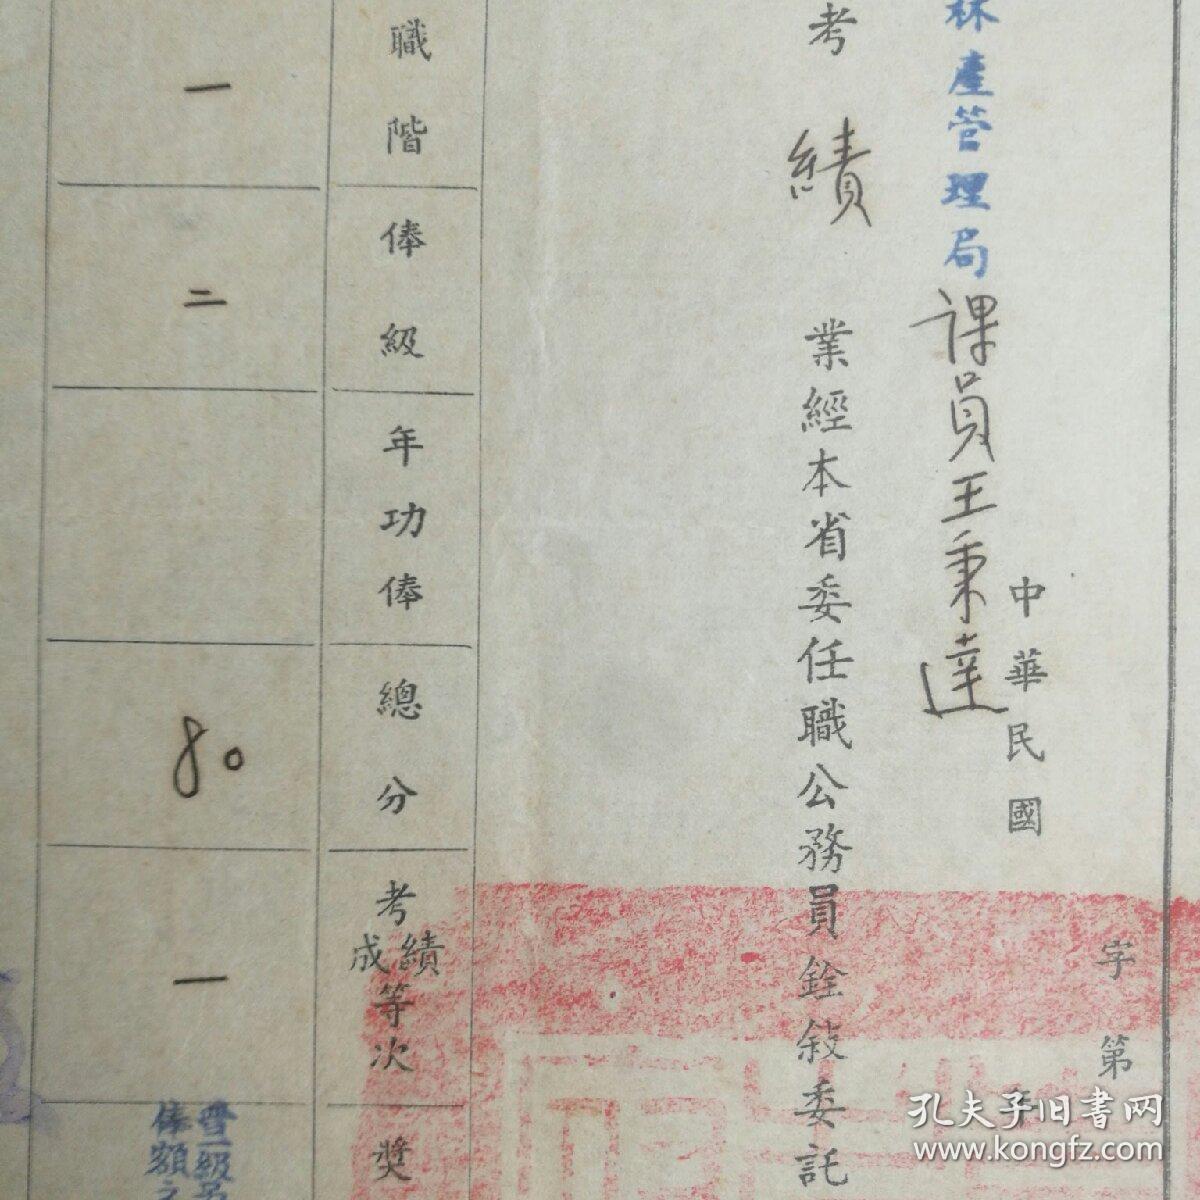 字第
中華民國 年
林產管理局課員王秉達
考績 業經本省委任職公務員銓敍委託
職階
俸級
年功俸
總分
考績成等次
獎
一
二
80
一
晋一級
俸額之
孔夫子旧书网
www.kongfz.com